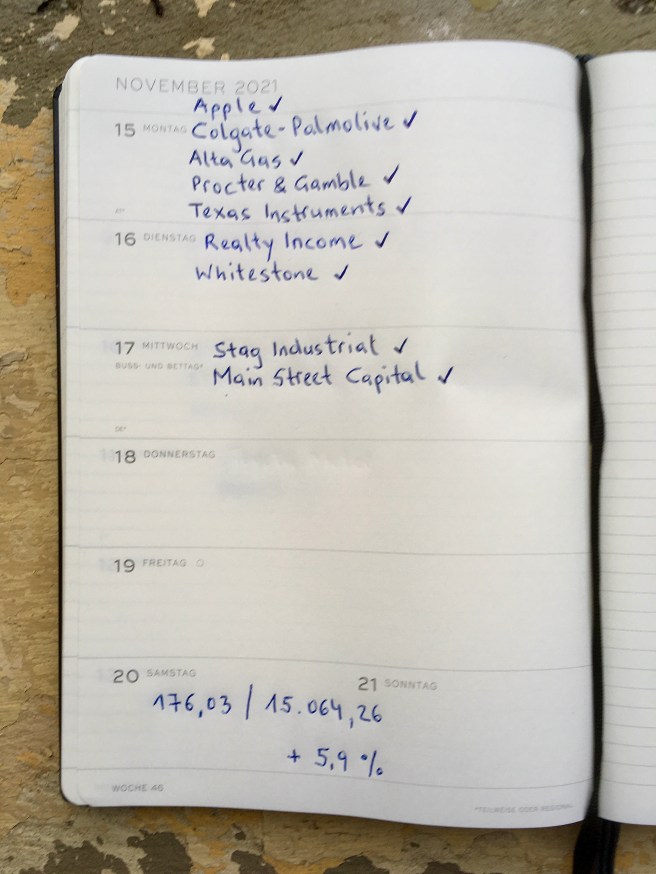 NOVEMBER 2021
Apple ✓
15 MONTAG Colgate-Palmolive ✓
Alta Gas ✓
Procter & Gamble ✓
Texas Instruments ✓
16 DIENSTAG Realty Income ✓
Whitestone ✓
17 MITTWOCH Stag Industrial ✓
BUSS- UND BETTAG*
Main Street Capital ✓
18 DONNERSTAG
19 FREITAG
20 SAMSTAG
21 SONNTAG
176,03 / 15.064,26
+ 5,9 %
WOCHE 46
*TEILWEISE ODER REGIONAL